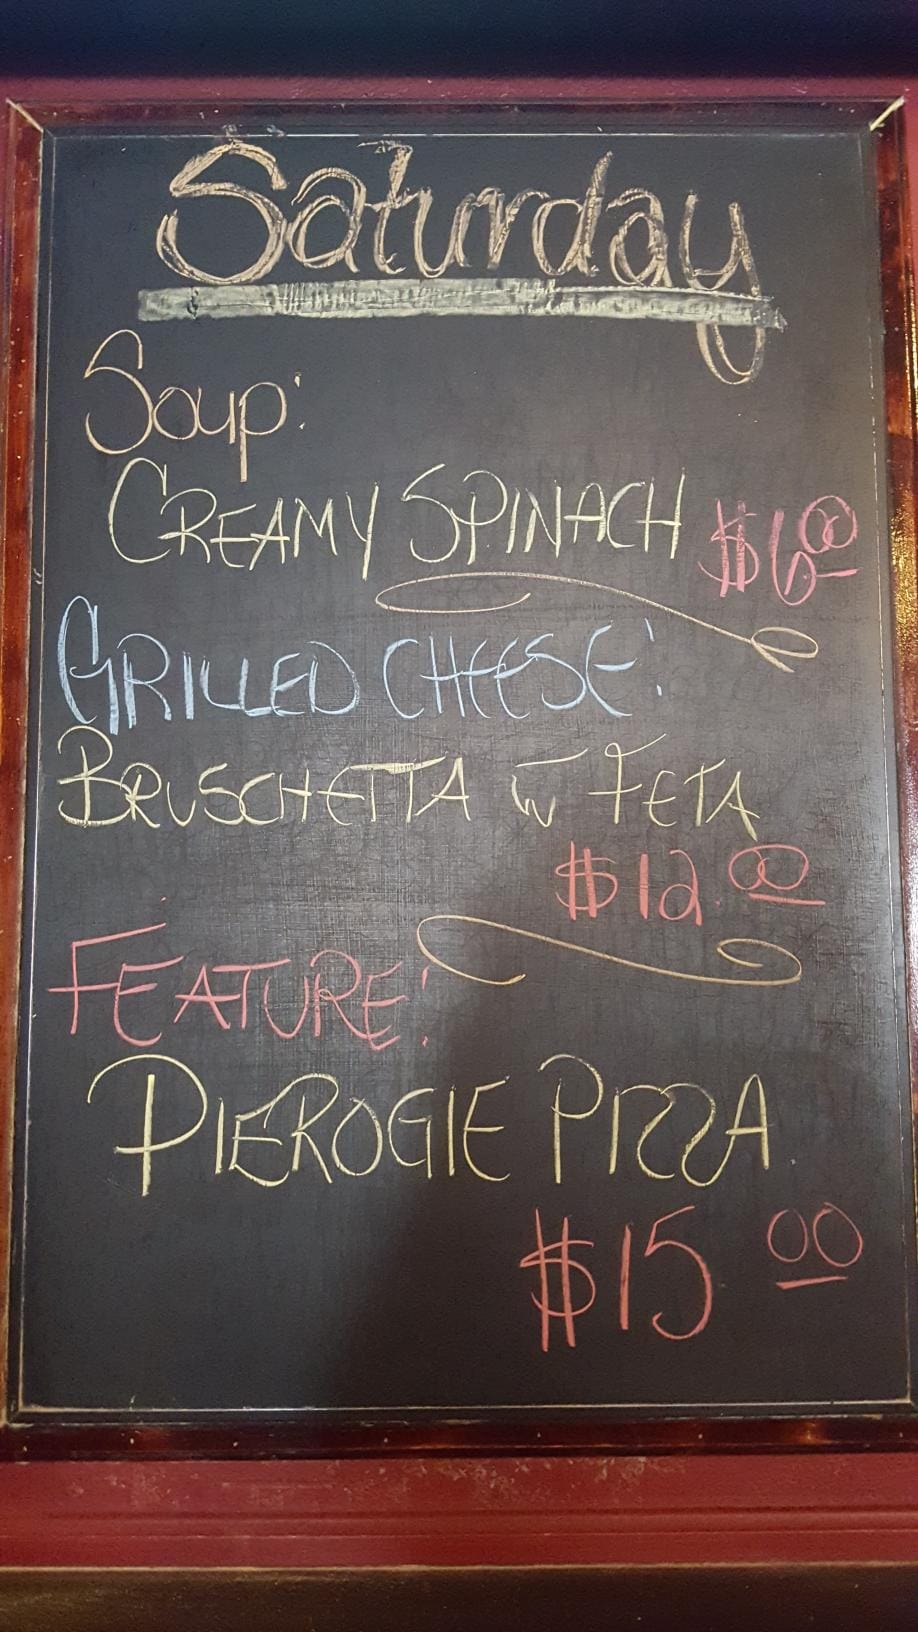 Saturday
Soup:
CREAMY SPINACH $6.00
GRILLED CHEESE:
BRUSCHETTA w FETA
$12.00
FEATURE:
PIEROGIE PIZZA
$15 00